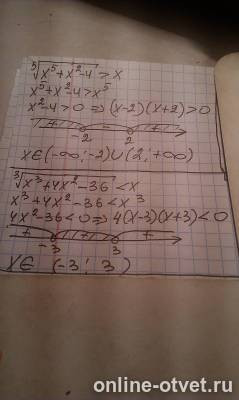 ⁵√x⁵+x²-4 > x
x⁵+x²-4>x⁵
x²-4>0 ⇒ (x-2)(x+2)>0
+ - +
-2 2
x∈(-∞;-2)∪(2;+∞)
³√x³+4x²-36 < x
x³+4x²-36<x³
4x²-36<0 ⇒ 4(x-3)(x+3)<0
+ - +
-3 3
x∈ (-3; 3)
online-otvet.ru